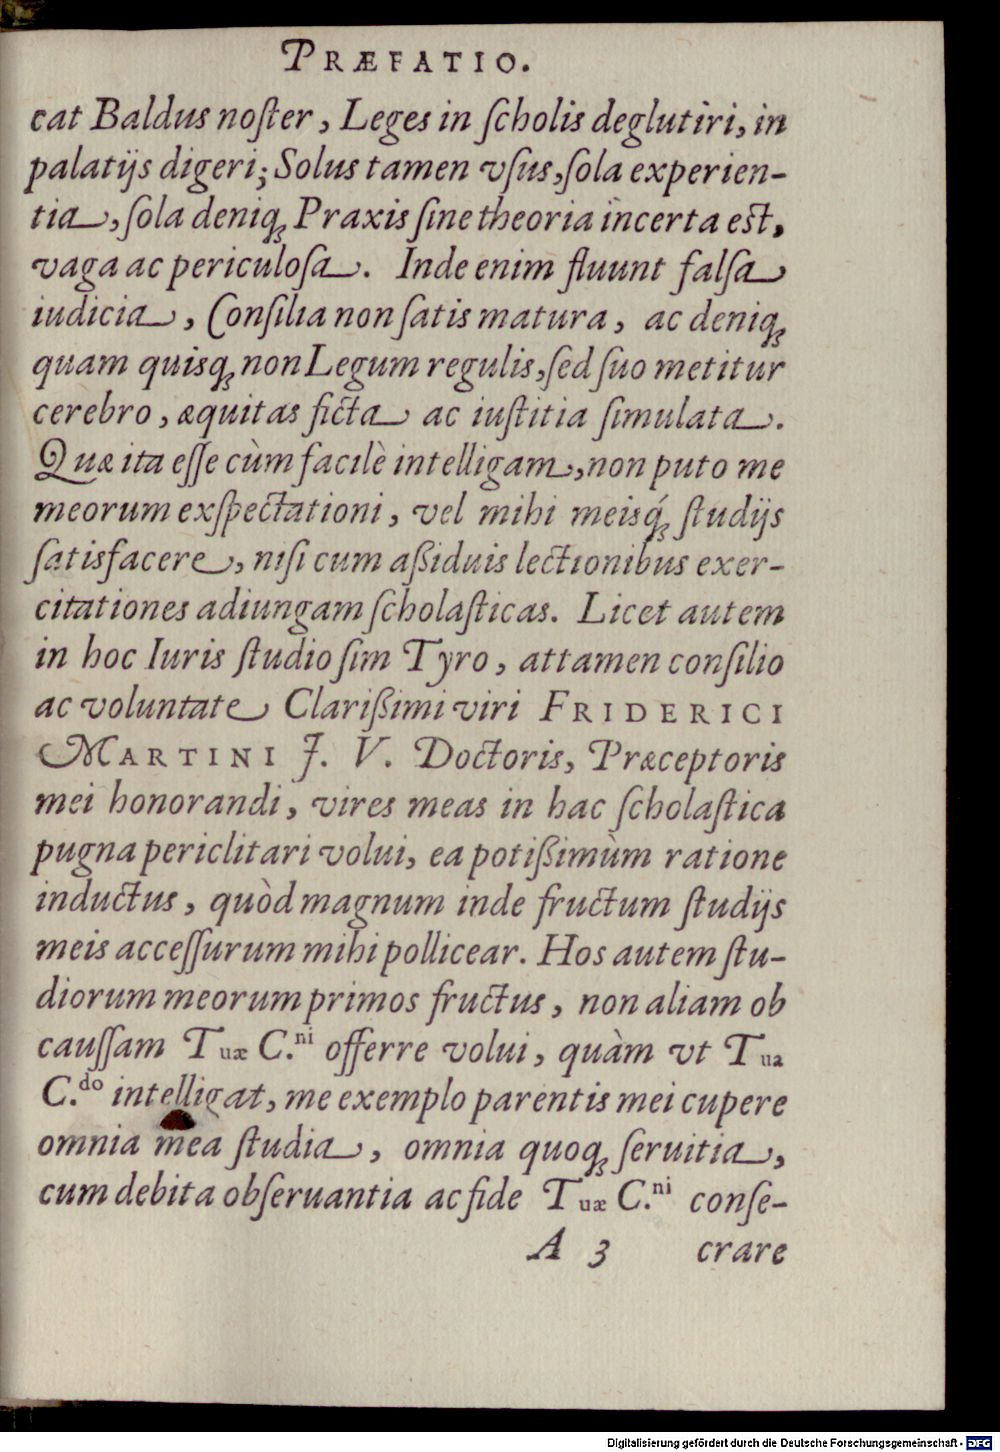 PRÆFATIO.
cat Baldus noſter, Leges in ſcholis deglutiri, in
palatijs digeri; Solus tamen vſus, ſola experien-
tia, ſola deniq; Praxis ſine theoria incerta est,
vaga ac periculoſa. Inde enim fluunt falſa
iudicia, Conſilia non ſatis matura, ac deniq;
quam quisq; non Legum regulis, ſed ſuo metitur
cerebro, æquitas ficta ac iuſtitia ſimulata.
Quæ ita eſſe cùm facilè intelligam, non puto me
meorum exſpectationi, vel mihi meisq́; ſtudijs
ſatisfacere, niſi cum aßiduis lectionibus exer-
citationes adiungam ſcholaſticas. Licet autem
in hoc Iuris ſtudio ſim Tyro, attamen conſilio
ac voluntate Clarißimi viri FRIDERICI
MARTINI J. V. Doctoris, Præceptoris
mei honorandi, vires meas in hac ſcholaſtica
pugna periclitari volui, ea potißimùm ratione
inductus, quòd magnum inde fructum ſtudijs
meis acceſſurum mihi pollicear. Hos autem ſtu-
diorum meorum primos fructus, non aliam ob
cauſſam Tuæ C.ni offerre volui, quàm vt Tua
C.do intelligat, me exemplo parentis mei cupere
omnia mea ſtudia, omnia quoq; ſeruitia,
cum debita obſeruantia ac fide Tuæ C.ni conſe-
A 3 crare
Digitalisierung gefördert durch die Deutsche Forschungsgemeinschaft - DFG